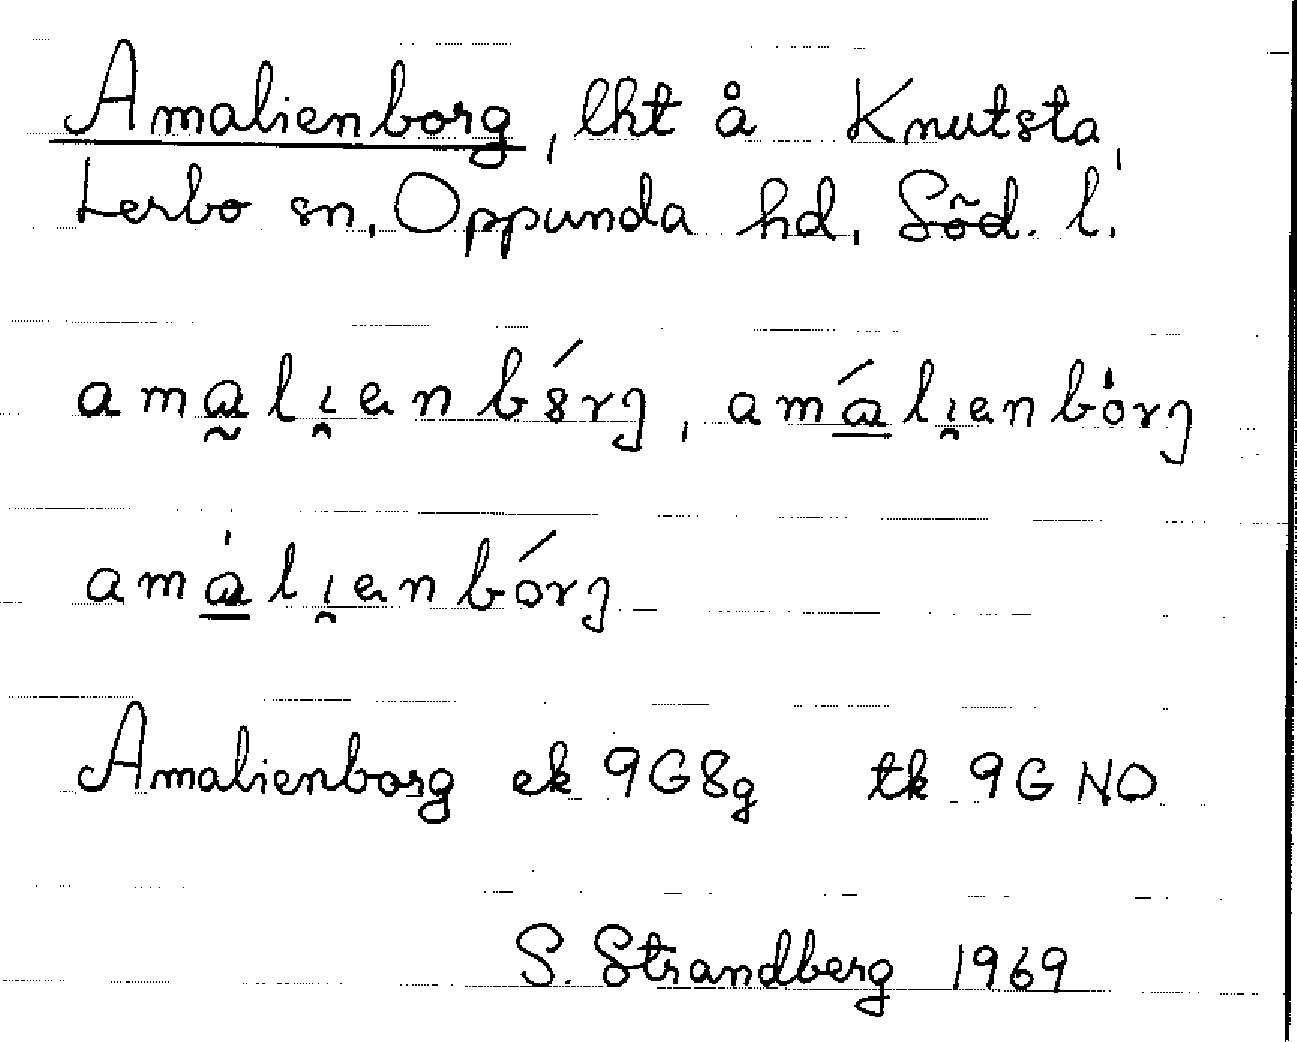 Amalienborg, lht å Knutsta,
Lerbo sn, Oppunda hd, Söd. l.
ama̰li̯enbórg, amá̱li̯enbo̍rg
ama̱̍li̯enbórg
Amalienborg ek 9G8g tk 9G NO
S. Strandberg 1969